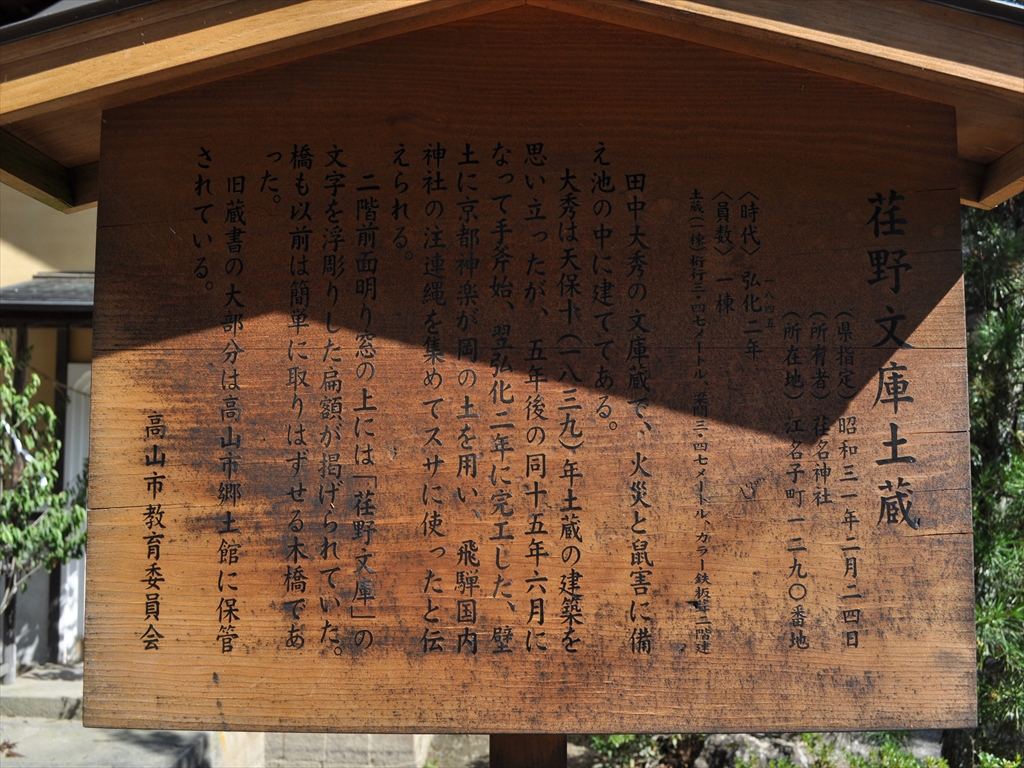 荏野文庫土蔵
(県指定) 昭和三一年二月二四日
(所有者) 荏名神社
(所在地) 江名子町一二九〇番地
一八四五
〈時代〉 弘化二年
〈員数〉 一棟
土蔵一棟桁行三・四七メートル、梁間三・四七メートル、カラー鉄板葺二階建
田中大秀の文庫蔵で、火災と鼠害に備
え池の中に建ててある。
大秀は天保十(一八三九)年土蔵の建築を
思い立ったが、五年後の同十五年六月に
なって手斧始、翌弘化二年に完工した、壁
土に京都神楽が岡の土を用い、飛騨国内
神社の注連縄を集めてスサに使ったと伝
えられる。
二階前面明り窓の上には「荏野文庫」の
文字を浮彫りした扁額が掲げられていた。
橋も以前は簡単に取りはずせる木橋であ
った。
旧蔵書の大部分は高山市郷土館に保管
されている。
高山市教育委員会